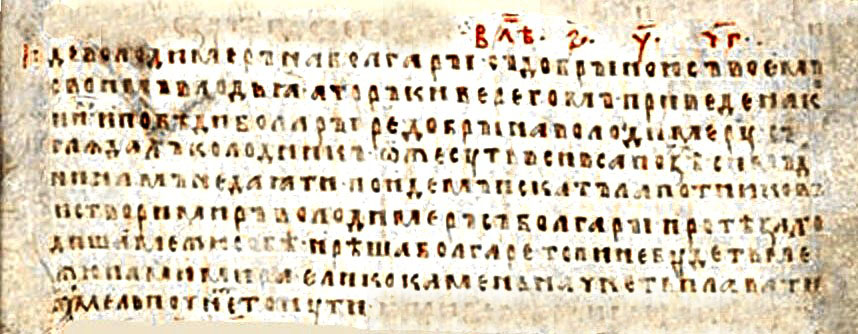 в лѣ҃ · ҂ѕ҃ · у҃ · ч҃г ·
Иде володимеръ на болгары · съ добрыною съ воемъ
своимъ в лодьꙗ · а торъки берегомъ приведе на к
ни · и побѣди болгары · ре добрына володимеру · съ
глѧдахъ колодникъ · ѡже суть вси в сапозѣ · симъ д
ни намъ не даꙗти · поидемъ искатъ лапотниковъ
и створи миръ володимеръ съ болгары · и ротѣ захо
диша межю собѣ · и рѣша болгаре толи не будеть ме
жю нами мира · елико камень начнеть плавати
а хмель почнеть тонути